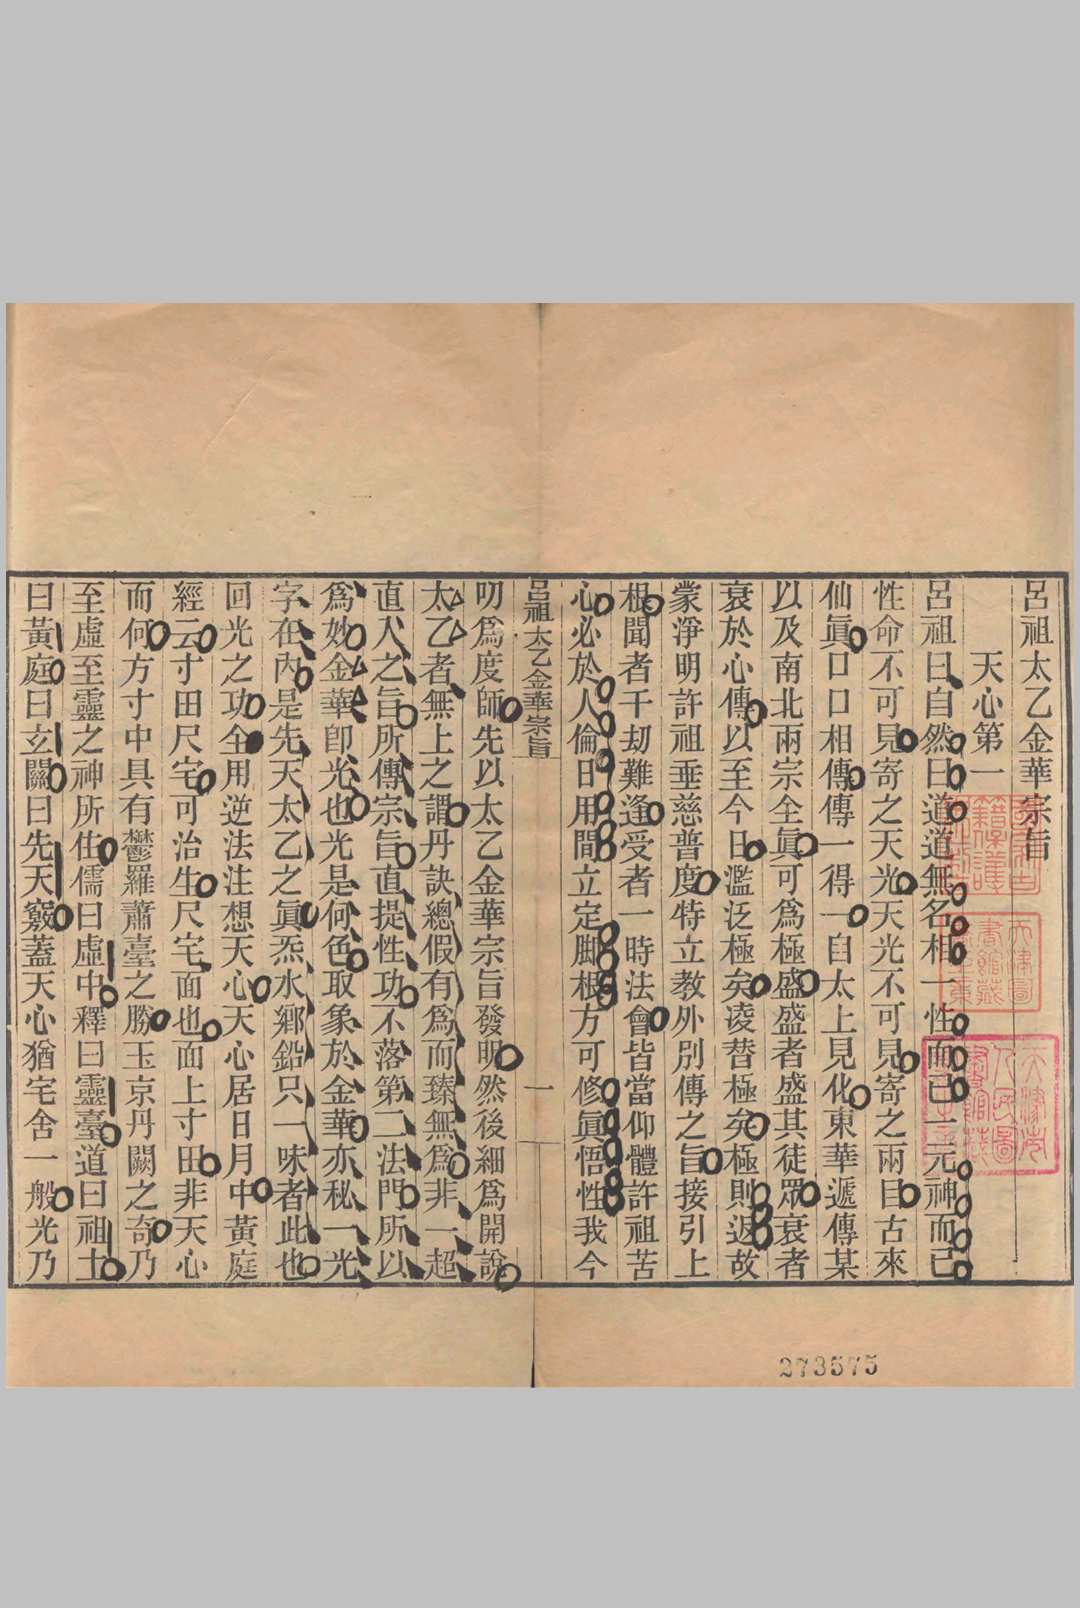 呂祖太乙金華宗旨
天心第一
呂祖曰自然曰道道無名相一性而已一元神而已
性命不可見寄之天光天光不可見寄之兩目古來
仙眞口口相傳傳一得一自太上見化東華遞傳某
以及南北兩宗全眞可爲極盛盛者盛其徒眾衰者
衰於心傳以至今日濫泛極矣凌替極矣極則返故
蒙淨明許祖垂慈普度特立教外別傳之旨接引上
根聞者千劫難逢受者一時法會皆當仰體許祖苦
心必於人倫日用間立定脚根方可修眞悟性我今
呂祖太乙金華宗旨
一
叨爲度師先以太乙金華宗旨發明然後細爲開說
太乙者無上之謂丹訣總假有爲而臻無爲非一超
直入之旨所傳宗旨直提性功不落第二法門所以
爲妙金華卽光也光是何色取象於金華亦秘一光
字在內是先天太乙之眞炁水鄉鉛只一味者此也
回光之功全用逆法注想天心天心居日月中黃庭
經云寸田尺宅可治生尺宅面也面上寸田非天心
而何方寸中具有鬱羅蕭臺之勝玉京丹闕之奇乃
至虛至靈之神所住儒曰虛中釋曰靈臺道曰祖土
曰黃庭曰玄關曰先天竅蓋天心猶宅舍一般光乃
天津圖
書館藏
天津市
人民圖
書館藏
273575